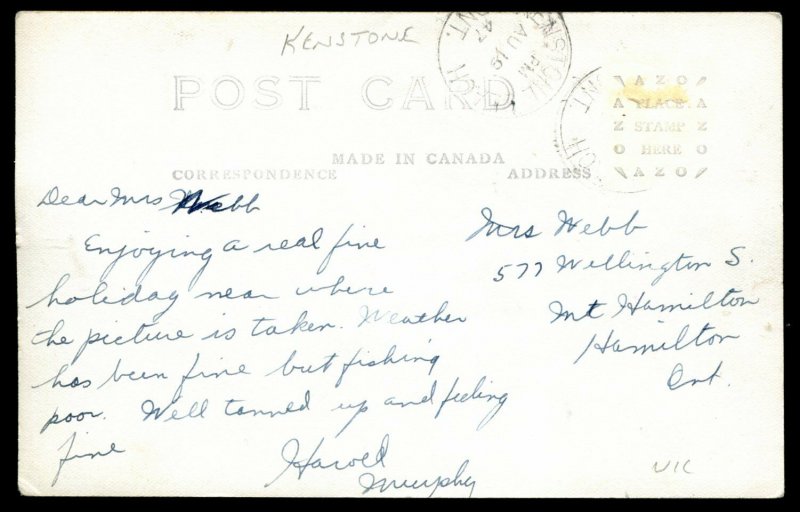 KENSTONE
KENSTONE
AU 19
PM
47
ONT.
POST CARD
AZO
A PLACE A
Z STAMP Z
O HERE O
AZO
MADE IN CANADA
CORRESPONDENCE
ADDRESS
Dear Mrs Webb
Enjoying a real fine
holiday near where
the picture is taken. Weather
has been fine but fishing
poor. Well tanned up and feeling
fine
Harold
Murphy
Mrs Webb
577 Wellington S.
Mt Hamilton
Hamilton
Ont.